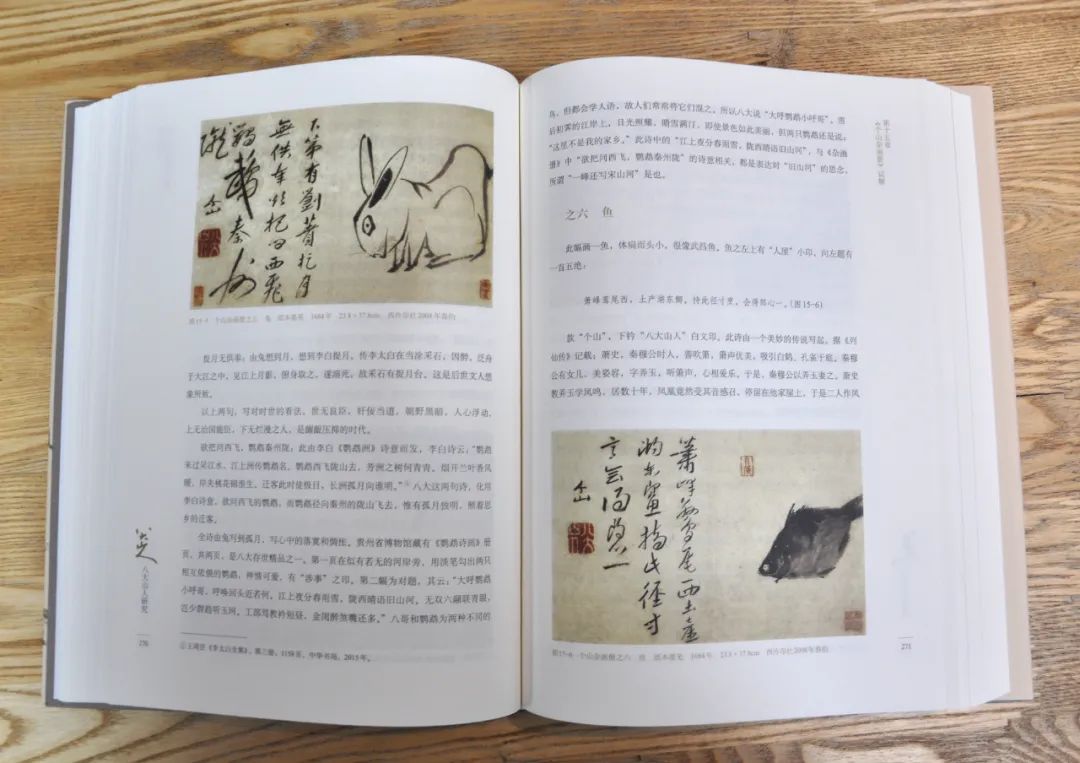 下第有刘蕡捉月
無供奉欲把问西飛
鹦鹉秦州
隴
图15-5 个山杂画册之五 兔 纸本墨笔 1684年 23.8×37.8cm 西泠印社2008年春拍
捉月无供奉：由兔想到月，想到李白捉月。传李太白在当涂采石，因醉，泛舟
于大江之中，见江上月影，俯身取之，遂溺死，故采石有捉月台。这是后世文人想
象所致。
以上两句，写对时世的看法，世无良臣，奸佞当道，朝野黑暗，人心浮动，
上无治国能臣，下无烂漫之人，是龌龊压抑的时代。
欲把问西飞，鹦鹉秦州陇：此由李白《鹦鹉洲》诗意而发，李白诗云：“鹦鹉
来过吴江水，江上洲传鹦鹉名。鹦鹉西飞陇山去，芳洲之树何青青。烟开兰叶香风
暖，岸夹桃花锦浪生。迁客此时徒极目，长洲孤月向谁明。”① 八大这两句诗，化用
李白诗意，欲问西飞的鹦鹉，而鹦鹉径向秦州的陇山飞去，惟有孤月独明，照着思
乡的迁客。
全诗由兔写到孤月，写心中的落寞和惆怅。贵州省博物馆藏有《鹦鹉诗画》册
页，共两页，是八大存世精品之一。第一页在似有若无的河岸旁，用淡笔勾出两只
相互依偎的鹦鹉，神情可爱，有“涉事”之印。第二幅为对题，其云：“大呼鹦鹉
小呼哥，呼唤回头近若何。江上夜分春雨雪，陇西晴语旧山河。无双六翮联青眼，
听玉珂。工部骂教衿短昼，金闺醉煞嘴还多。”八哥和鹦鹉为两种不同的
①王琦注《李太白全集》，第三册，1159页，中华书局，2015年。
八大山人研究
270
鸟，但都会学人语，故人们常常将它们混之。所以八大说“大呼鹦鹉小呼哥”。雪
后初霁的江岸上，日光照耀，晴雪满汀，即使景色如此美丽，但两只鹦鹉还是说：
“这里不是我的家乡。”此诗中的“江上夜分春雨雪，陇西晴语旧山河”，与《杂画
册》中“欲把问西飞，鹦鹉秦州陇”的诗意相关，都是表达对“旧山河”的思念，
所谓“一峰还写宋山河”是也。
之六 鱼
此幅画一鱼，体扁而头小，很像武昌鱼。鱼之左上有“人屋”小印，向左题有
一首五绝：
萧峰莺尾西，土产潮东鲷。恃此径寸肉，会得郎心一。（图15-6）
款“个山”，下钤“八大山人”白文印。此诗由一个美妙的传说写起。据《列
仙传》记载：萧史，秦穆公时人，善吹箫，箫声优美，吸引白鹤、孔雀于庭。秦穆
公有女儿，美姿容，字弄玉，听箫声，心相爱乐。于是，秦穆公以弄玉妻之。萧史
教弄玉学凤鸣，居数十年，凤凰竟然受其音感召，停留在他家屋上，于是二人作凤
图15-6 个山杂画册之六 鱼 纸本墨笔 1684年 23.8×37.8cm 西泠印社2008年春拍
第十五章
《个山杂画册》试解
271